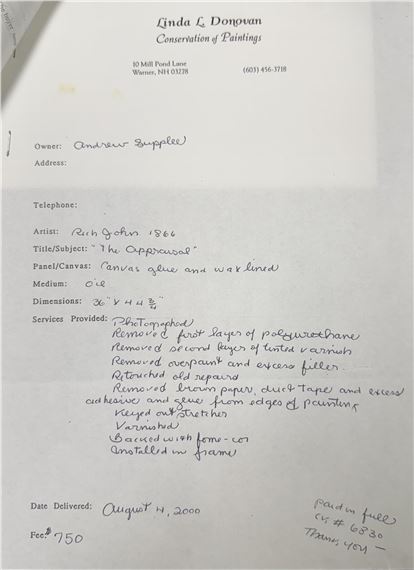 the buyer
Linda L. Donovan
Conservation of Paintings
10 Mill Pond Lane
Warner, NH 03278
(603) 456-3718
Owner: Andrew Supplee
Address:
Telephone:
Artist: Rich John 1866
Title/Subject: "The Appraisal"
Panel/Canvas: Canvas glue and wax lined
Medium: oil
Dimensions: 36" X 44 3/4"
Services Provided: Photographed
Removed first layer of polyurethane
Removed second layer of tinted varnish
Removed overpaint and excess filler.
Retouched old repairs
Removed brown paper, duct tape and excess
adhesive and glue from edges of painting
Keyed out stretcher
Varnished
Backed with fome-cor
Installed in frame
Date Delivered: August 4, 2000
Fee: $750
Paid in full
ck # 6830
Thank you —